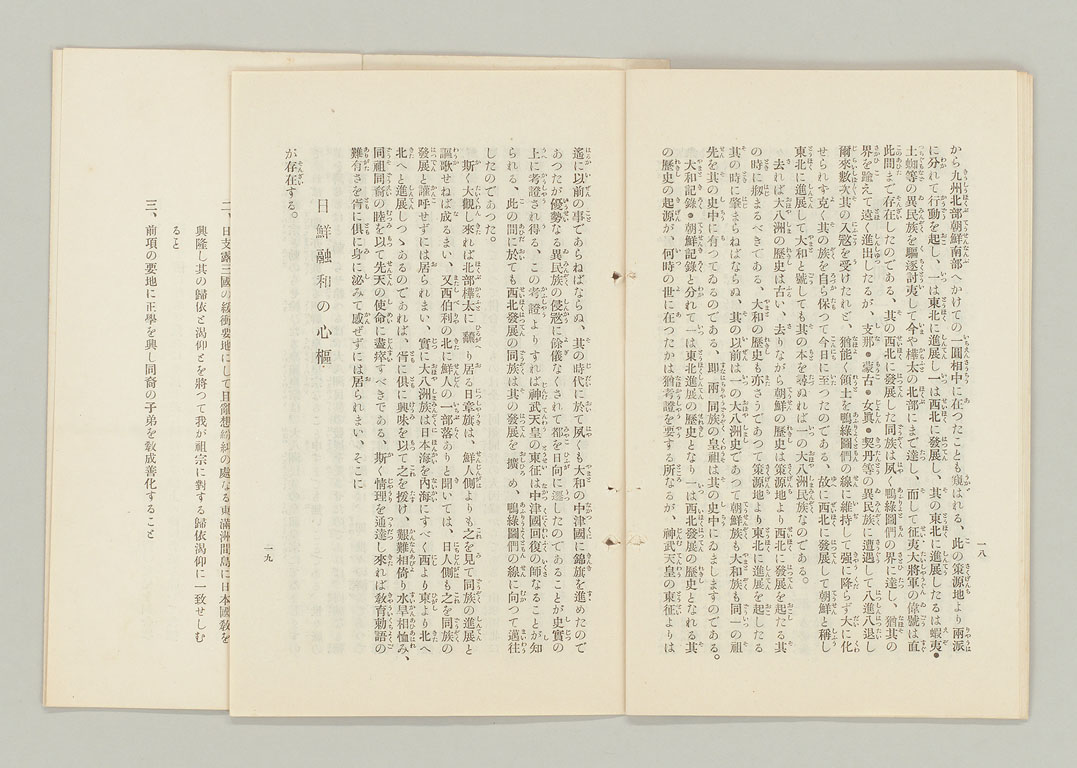 から九州北部朝鮮南部へかけての一圓相中に在つたことも窺はれる、此の策源地より兩派
に分れて行動を起し、一は東北に進展し一は西北に發展し、其の東北に進展したるは蝦夷・
土蜘等の異民族を驅逐討夷して今や樺太の北部にまで達し、而して征夷大將軍の偉號は直
此間まで存在したのである、其の西北に發展した同族は夙く鴨綠圖們の界に達し、猶其の
界を踰えて遠く進出したるが、支那・蒙古・女眞・契丹等の異民族に遭遇して八進八退し
爾來數次其の入寇を受けたれど、猶能く領土を鴨綠圖們の線に維持して强に降らず大に化
せられず克く其の族を自ら保つて今日に至つたのである、故に西北に發展して朝鮮と稱し
東北に進展して大和と號しても其の本を尋ぬれば一の大八洲民族なのである。
去れば大八洲の歷史は古い、去りながら朝鮮の歷史は策源地より西北に發展を起たる其
の時に肇まるべきである、大和の歷史も亦さうであつて策源地より東北に進展を起したる
其の時に肇まらねばならぬ、其の以前は一の大八洲史であつて朝鮮族も大和族も同一の祖
先を其の史中に有つてゐるのである、即ち兩同族の皇祖は其の史中にゐましますのである。
大和記錄・朝鮮記錄と分れて一は東北進展の歷史となり一は西北發展の歷史となれる其
の歷史の起源が、何時の世に在つたかは猶考證を要する所なるが、神武天皇の東征よりは
一八
遙に以前の事であらねばならぬ、其の時代に於て夙くも大和の中津國に錦旗を進めたので
あつたが優勢なる異民族の侵寇に餘儀なくされて都を日向に遷したのであることが史實の
上に考證され得る、この考證よりすれば神武天皇の東征は中津國回復の師なることが知
られる、此の間に於ても西北發展の同族は其の發展を擴め、鴨綠圖們の線に向つて邁往
したのであつた。
斯く大觀し來れば北部樺太に飜り居る日章旗は、鮮人側よりも之を見て同族の進展と
謳歌せねば成るまい、又西伯利の北に鮮人の一部落ありと聞いては、日人側も之を同族の
發展と讙呼せずには居られまい、實に大八洲族は日本海を內海にすべく西より東より北へ
北へと進展しつゝあるのであれば、胥に俱に興味を以て之を援け、艱難相倚り水旱相恤み、
同祖同裔の睦を以て先天の使命に盡瘁すべきである、斯く情理を通達し來れば敎育勅語の
難有さを胥に俱に身に泌みて感ぜずには居られまい、そこに
日鮮融和の心樞
が存在する。
一九
二、日支露三國の緩衝要地にして且亂想糾紛の處なる東滿洲間島に日本國敎を
興隆し其の歸依と渴仰とを將つて我が祖宗に對する歸依渴仰に一致せしむ
ると
三、前項の要地に正學を興し同裔の子弟を敎成善化すること